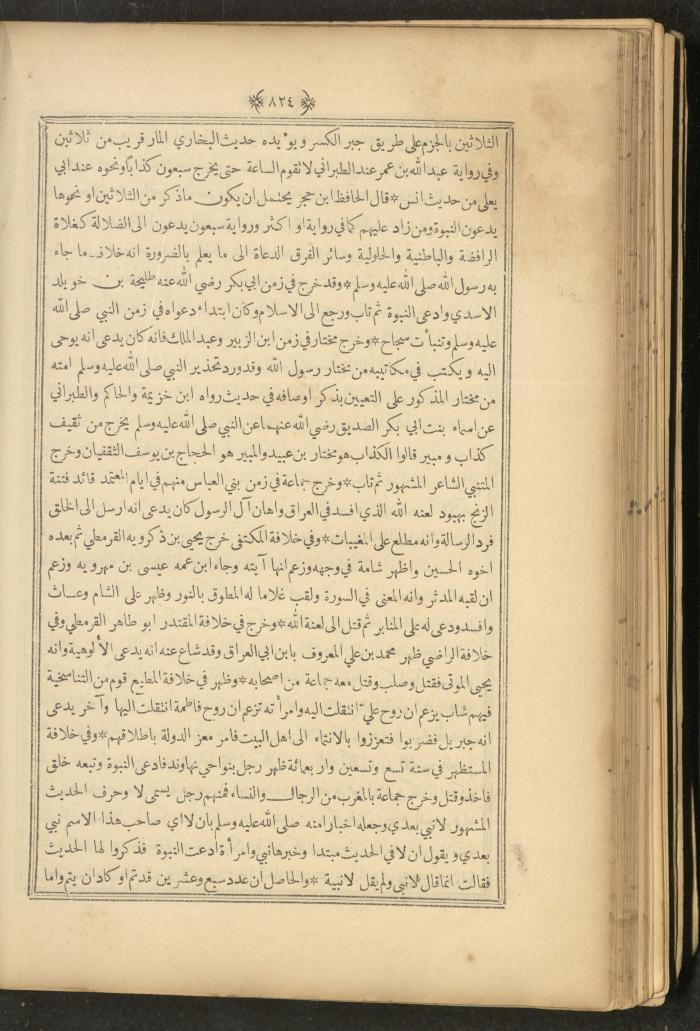 ٨٢٤
الثلاثين بالجزم على طريق جبر الكسر ويؤيده حديث البخاري المار قريب من ثلاثين
وفي رواية عبد الله بن عمر عند الطبراني لا تقوم الساعة حتى يخرج سبعون كذابا ونحوه عند ابي
يعلى من حديث انس * قال الحافظ ابن حجر يحتمل ان يكون ما ذكر من الثلاثين او نحوها
يدعون النبوة ومن زاد عليهم كما في رواية او اكثر ورواية سبعون يدعون الى الضلالة كغلاة
الرافضة والباطنية والحلولية وسائر الفرق الدعاة الى ما يعلم بالضرورة انه خلاف ما جاء
به رسول الله صلى الله عليه وسلم * وقد خرج في زمن ابي بكر رضي الله عنه طليحة بن خويلد
الاسدي وادعى النبوة ثم تاب ورجع الى الاسلام وكان ابتداء دعواه في زمن النبي صلى الله
عليه وسلم وتنبأت سجاح * وخرج مختار في زمن ابن الزبير وعبد الملك فانه كان يدعى انه يوحى
اليه ويكتب في مكاتيبه من مختار رسول الله وقد ورد تحذير النبي صلى الله عليه وسلم امته
من مختار المذكور على التعيين بذكر اوصافه في حديث رواه ابن خزيمة والحاكم والطبراني
عن اسماء بنت ابي بكر الصديق رضي الله عنهما عن النبي صلى الله عليه وسلم يخرج من ثقيف
كذاب ومبير قالوا الكذاب هو مختار بن عبيد والمبير هو الحجاج بن يوسف الثقفيان وخرج
المتنبي الشاعر المشهور ثم تاب * وخرج جماعة في زمن بني العباس منهم في ايام المعتمد قائد فتنة
الزنج بهبود لعنه الله الذي افسد في العراق واهان آل الرسول كان يدعى انه ارسل الى الخلق
فرد الرسالة وانه مطلع على المغيبات * وفي خلافة المكتفى خرج يحيى بن ذكرويه القرمطي ثم بعده
اخوه الحسين واظهر شامة في وجهه وزعم انها آيته وجاء ابن عمه عيسى بن مهرويه وزعم
ان لقبه المدثر وانه المعنى في السورة ولقب غلاما له المطوق بالنور وظهر على الشام وعاث
وافسد ودعى له على المنابر ثم قتل الى لعنة الله * وخرج في خلافة المقتدر ابو طاهر القرمطي وفي
خلافة الراضي ظهر محمد بن علي المعروف بابن ابي العراق وقد شاع عنه انه يدعى الألوهية وانه
يحيى الموتى فقتل وصلب وقتل معه جماعة من اصحابه * وظهر في خلافة المطيع قوم من التناسخية
فيهم شاب يزعم ان روح علي انتقلت اليه وامرأته تزعم ان روح فاطمة انتقلت اليها وآخر يدعى
انه جبريل فضربوا فتعززوا بالانتماء الى اهل البيت فامر معز الدولة باطلاقهم * وفي خلافة
المستظهر في سنة تسع وتسعين واربعمائة ظهر رجل بنواحي نهاوند فادعى النبوة وتبعه خلق
فاخذ وقتل وخرج جماعة بالمغرب من الرجال والنساء فمنهم رجل يسمى لا وحرف الحديث
المشهور لا نبي بعدي وجعله اخبارا منه صلى الله عليه وسلم بان لا اي صاحب هذا الاسم نبي
بعدي ويقول ان لا في الحديث مبتدا وخبرها نبي وامرأة ادعت النبوة فذكروا لها الحديث
فقالت انما قال لا نبي ولم يقل لا نبية * والحاصل ان عدد سبع وعشرين قد تم او كاد ان يتم واما